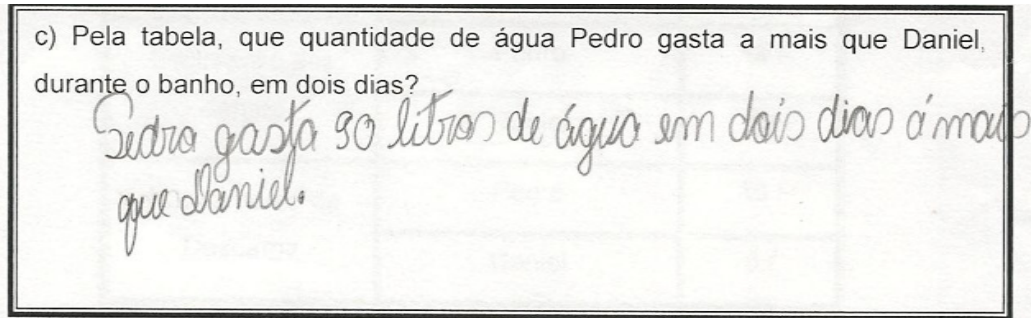 c) Pela tabela, que quantidade de água Pedro gasta a mais que Daniel,
durante o banho, em dois dias?
Pedro gasta 90 litros de água em dois dias á mais
que Daniel.